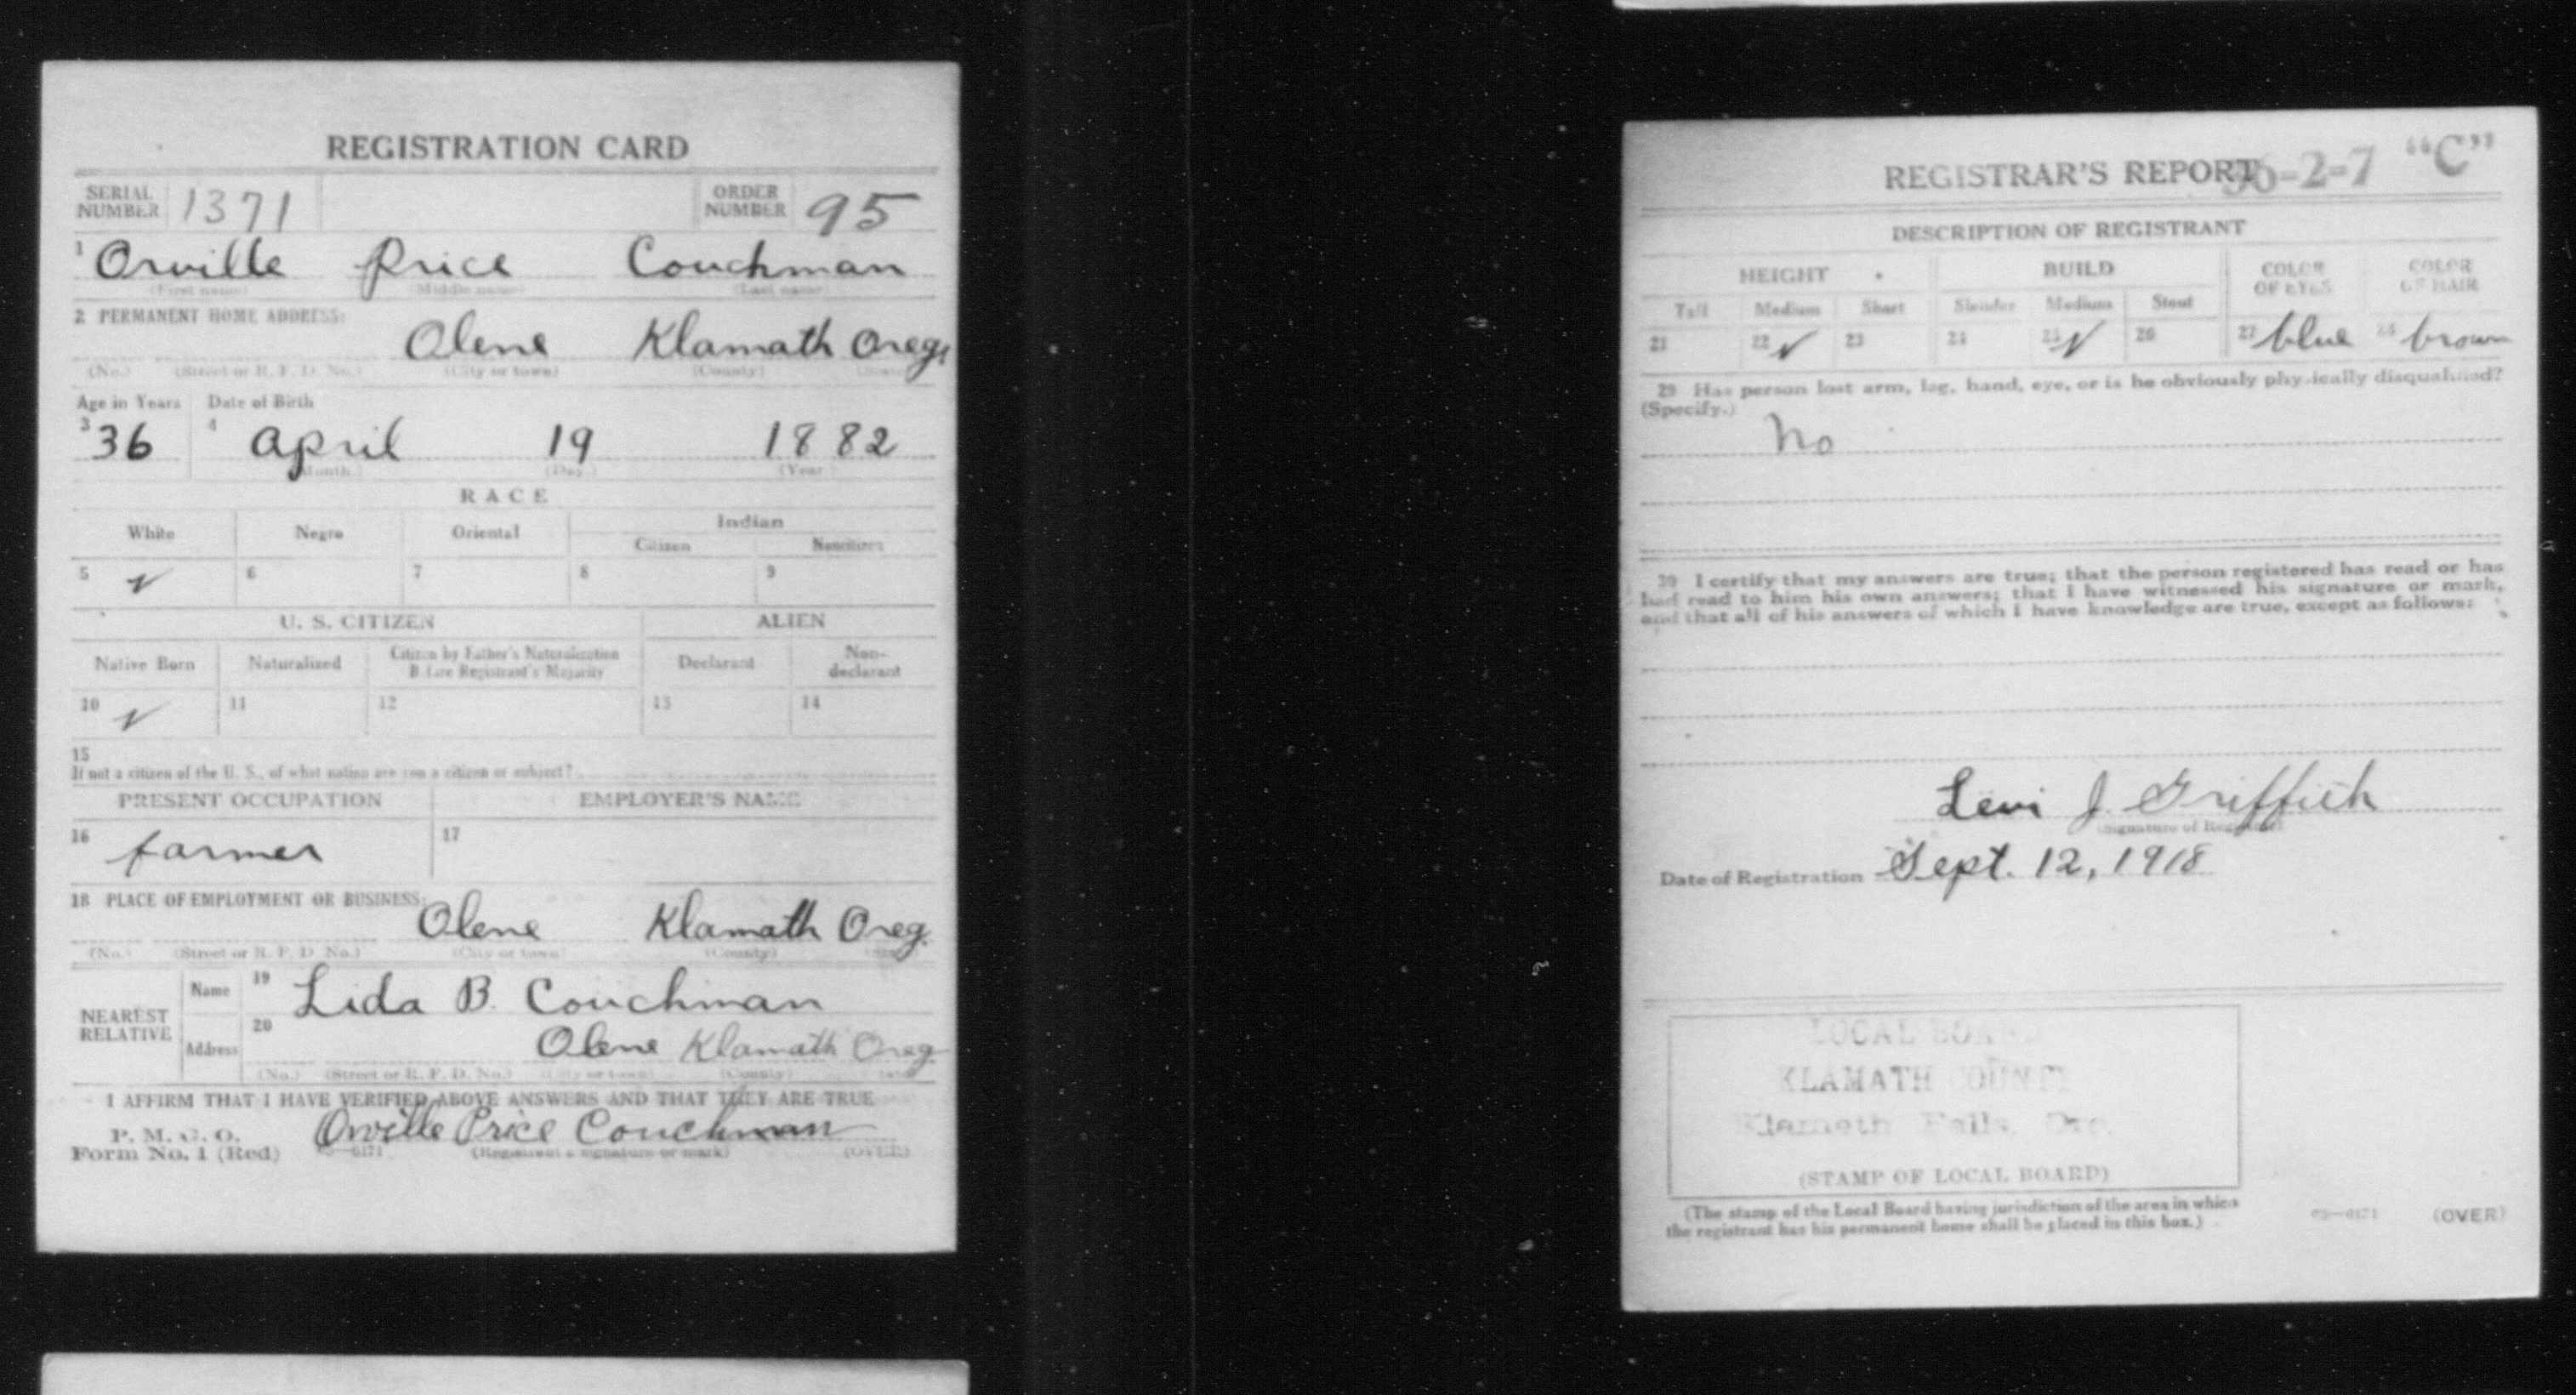 REGISTRATION CARD
SERIAL NUMBER 1371 ORDER NUMBER 95
1 Orville Price Couchman
(First name) (Middle name) (Last name)
2 PERMANENT HOME ADDRESS:
Olene Klamath Oreg.
(No.) (Street or R. F. D. No.) (City or town) (County) (State)
Age in Years Date of Birth
3 36 4 April 19 1882
(Month) (Day) (Year)
RACE
White Negro Oriental Indian
Citizen Noncitizen
5 ✓ 6 7 8 9
U. S. CITIZEN ALIEN
Native Born Naturalized Citizen by Father's Naturalization Before Registrant's Majority Declarant Non-declarant
10 ✓ 11 12 13 14
15
If not a citizen of the U. S., of what nation are you a citizen or subject?
PRESENT OCCUPATION EMPLOYER'S NAME
16 farmer 17
18 PLACE OF EMPLOYMENT OR BUSINESS:
Olene Klamath Oreg.
(No.) (Street or R. F. D. No.) (City or town) (County) (State)
NEAREST RELATIVE Name 19 Lida B. Couchman
Address 20 Olene Klamath Oreg.
(No.) (Street or R. F. D. No.) (City or town) (County) (State)
I AFFIRM THAT I HAVE VERIFIED ABOVE ANSWERS AND THAT THEY ARE TRUE
P. M. G. O.
Form No. 1 (Red) Orville Price Couchman
(Registrant's signature or mark) (OVER)
REGISTRAR'S REPORT 36-2-7 "C"
DESCRIPTION OF REGISTRANT
HEIGHT BUILD COLOR OF EYES COLOR OF HAIR
Tall Medium Short Slender Medium Stout
21 22 ✓ 23 24 25 ✓ 26 27 blue 28 brown
29 Has person lost arm, leg, hand, eye, or is he obviously physically disqualified?
(Specify.)
No
30 I certify that my answers are true; that the person registered has read or has
had read to him his own answers; that I have witnessed his signature or mark,
and that all of his answers of which I have knowledge are true, except as follows:
Levi J. Griffith
(Signature of Registrar)
Date of Registration Sept. 12, 1918
LOCAL BOARD
KLAMATH COUNTY
Klamath Falls, Ore.
(STAMP OF LOCAL BOARD)
(The stamp of the Local Board having jurisdiction of the area in which
the registrant has his permanent home shall be placed in this box.)
(OVER)